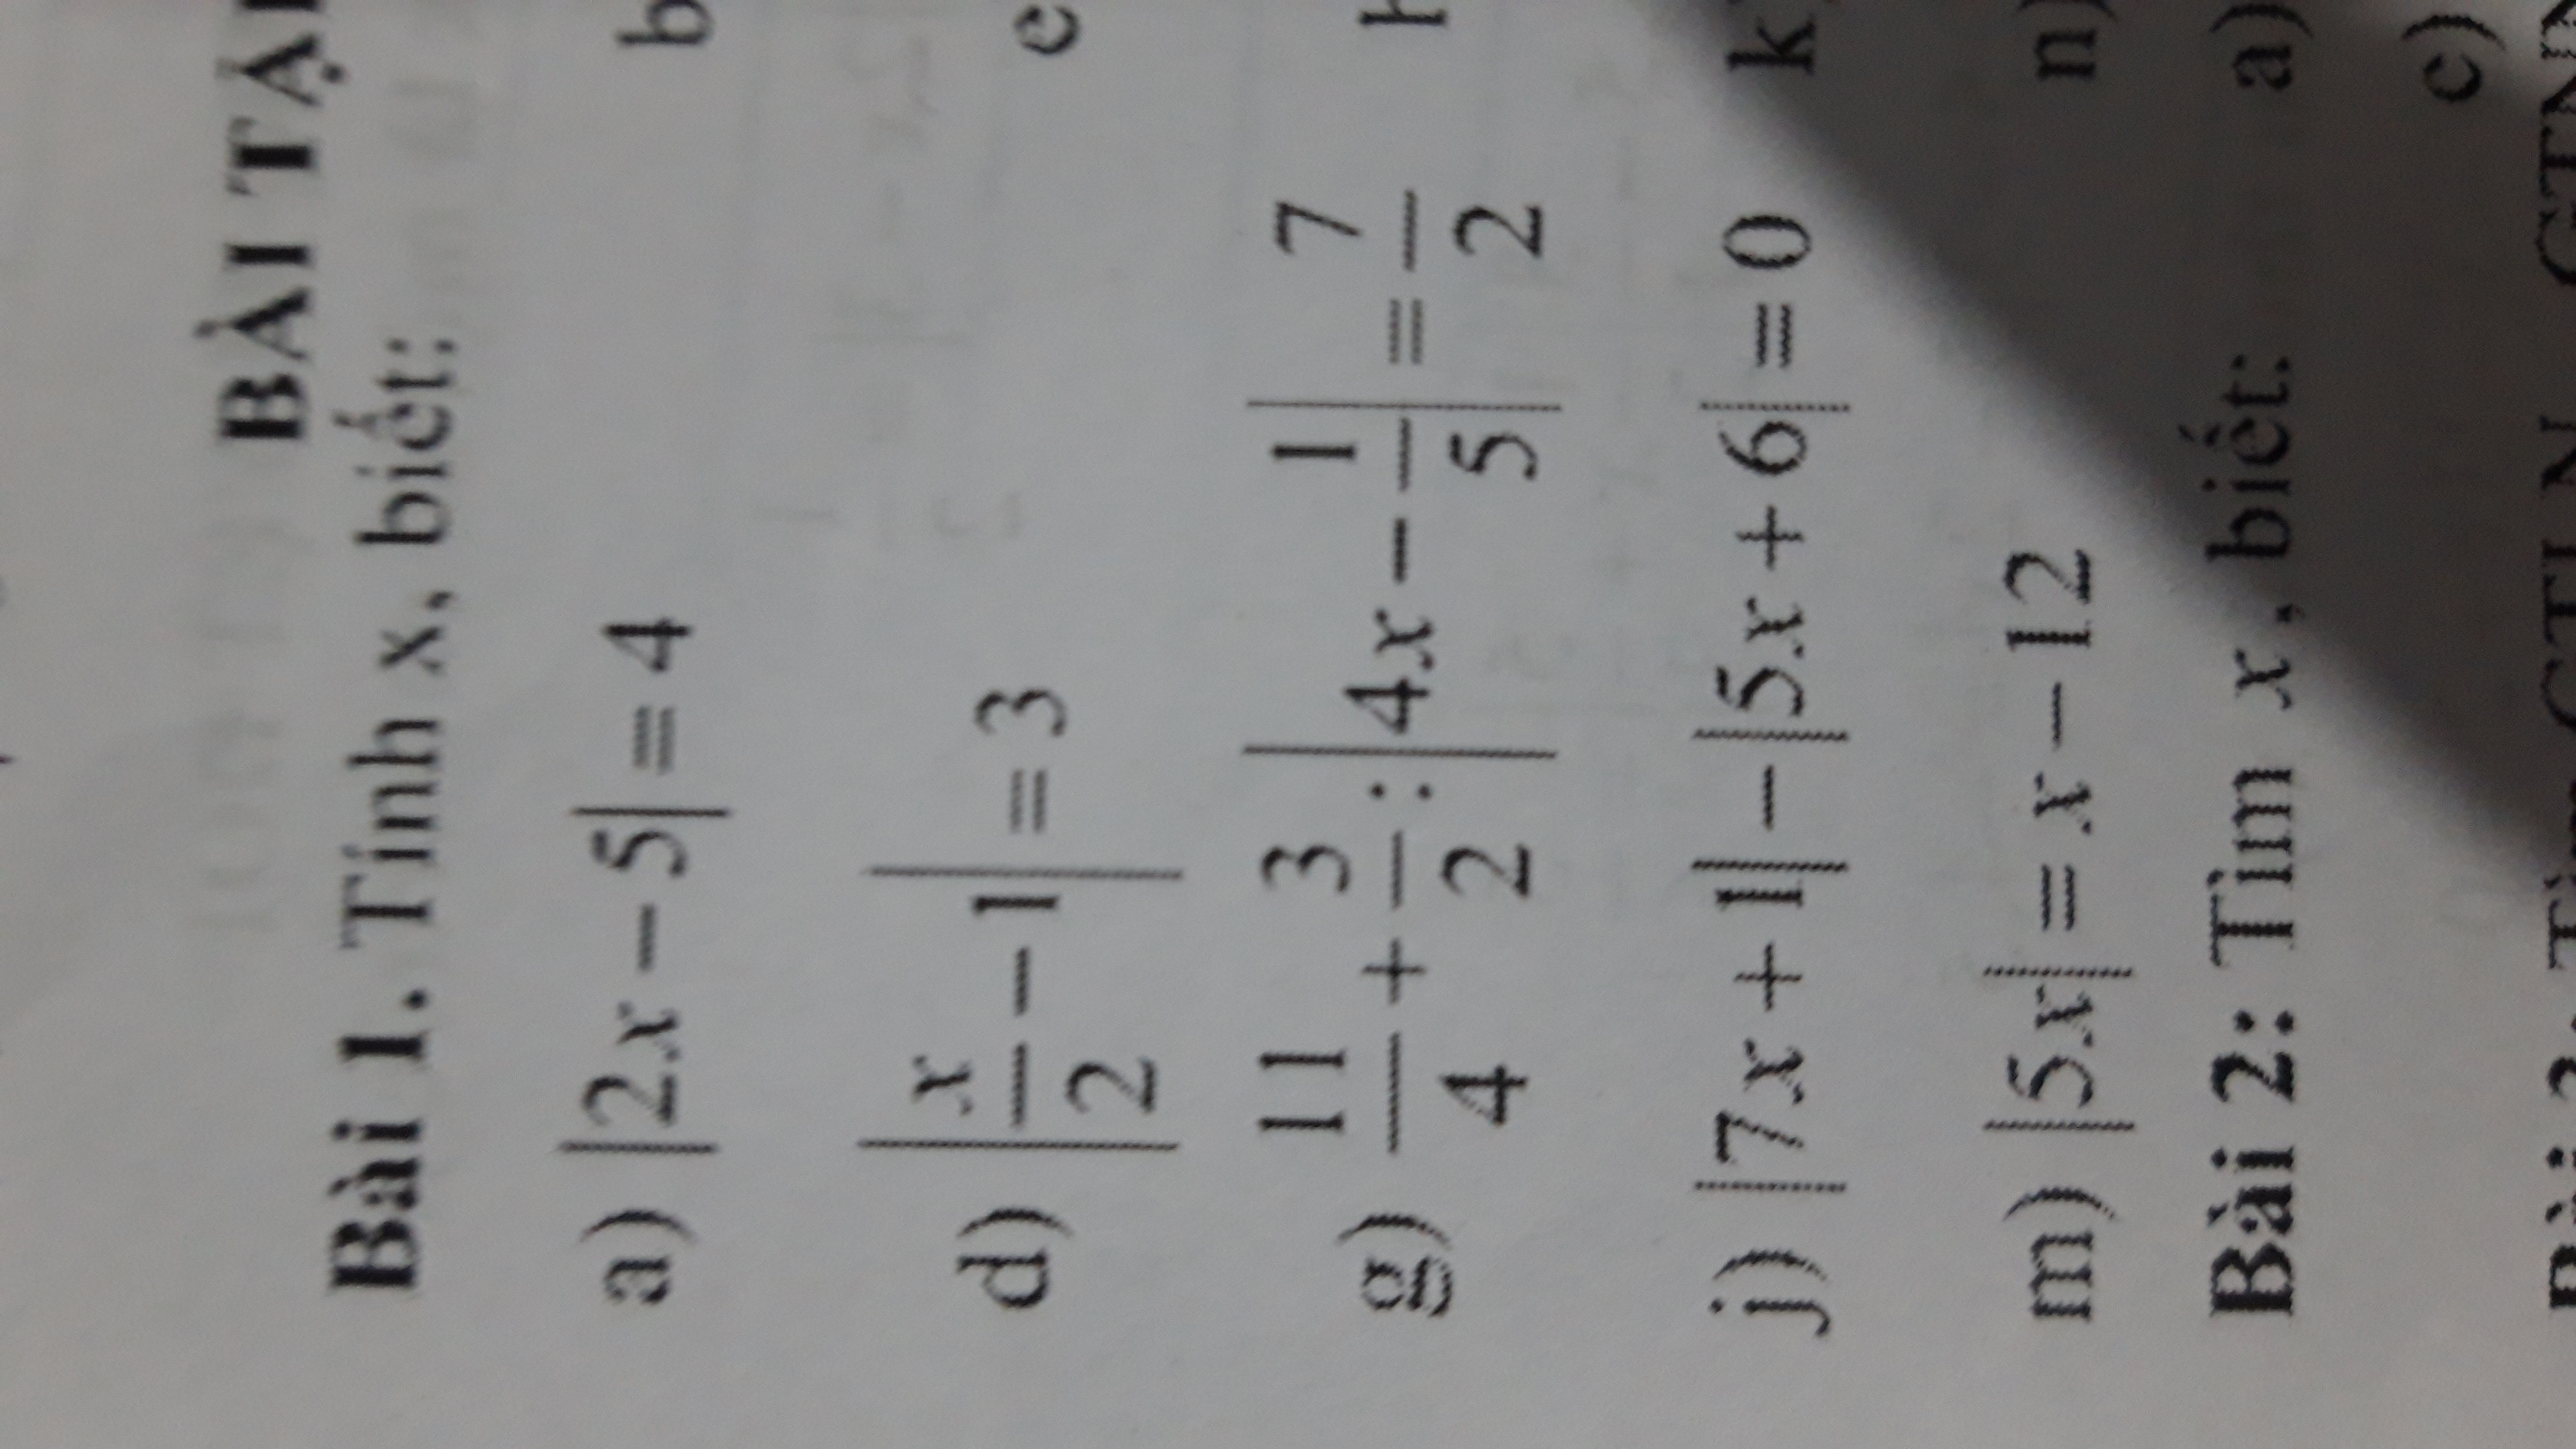 BÀI TẬ
Bài 1. Tính x, biết:
a) |2x − 5| = 4 b
d) |x/2 − 1| = 3 e
g) 11/4 + 3/2 : |4x − 1/5| = 7/2
j) |7x + 1| − |5x + 6| = 0 k)
m) |5x| = x − 12 n)
Bài 2: Tìm x, biết: a)
c)